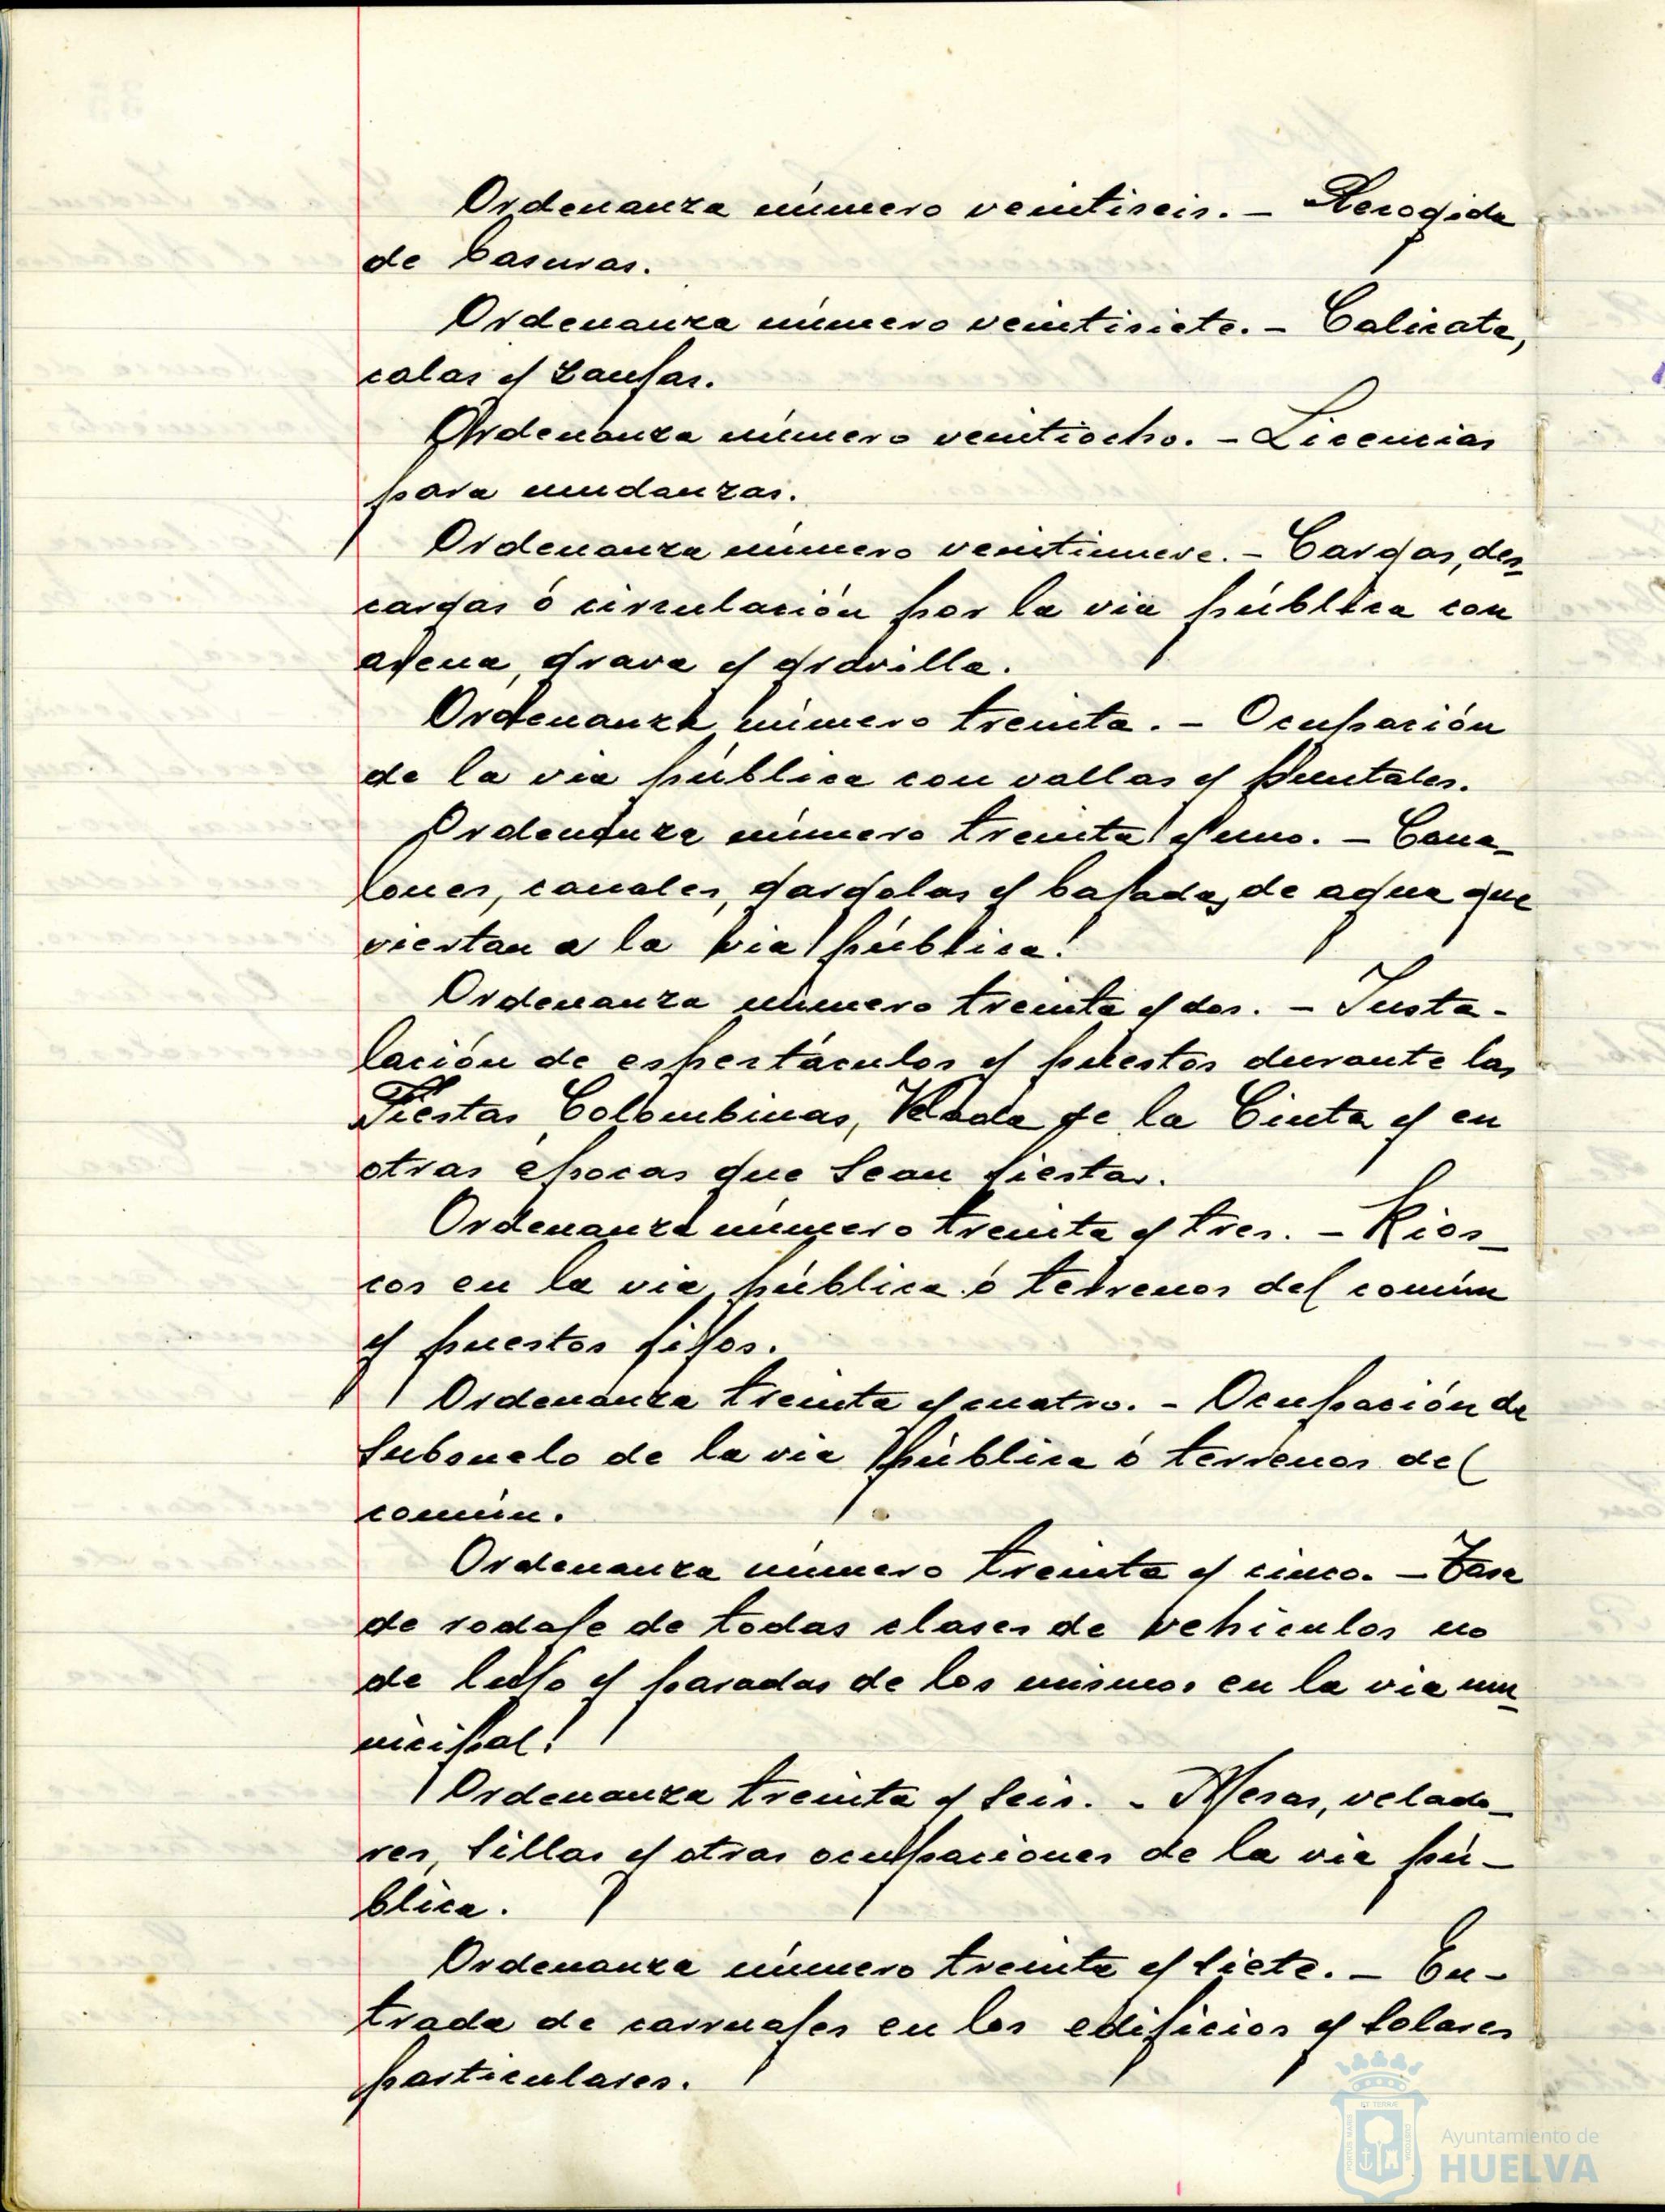 Ordenanza número veintiseis. - Recogida
de basuras.
Ordenanza número veintisiete. - Calicata,
calas y zanjas.
Ordenanza número veintiocho. - Licencias
para mudanzas.
Ordenanza número veintinueve. - Cargas, des-
cargas ó circulación por la via pública con
arena, grava y gravilla.
Ordenanza número treinta. - Ocupación
de la via pública con vallas y puntales.
Ordenanza número treinta y uno. - Cana-
lones, canales, gargolas y bajadas de agua que
viertan a la via pública.
Ordenanza número treinta y dos. - Insta-
lación de espectáculos y puestos durante las
Fiestas Colombinas, Velada de la Cinta y en
otras épocas que sean fiestas.
Ordenanza número treinta y tres. - Kios-
cos en la via pública ó terrenos del común
y puestos fijos.
Ordenanza treinta y cuatro. - Ocupación de
subsuelo de la via pública ó terrenos del
común.
Ordenanza número treinta y cinco. - Tasa
de rodaje de todas clases de vehiculos no
de lujo y paradas de los mismos en la via mu-
nicipal.
Ordenanza treinta y seis. - Mesas, velado-
res, sillas y otras ocupaciones de la via pú-
blica.
Ordenanza número treinta y siete. - En-
trada de carruajes en los edificios y solares
particulares.
Ayuntamiento de
HUELVA